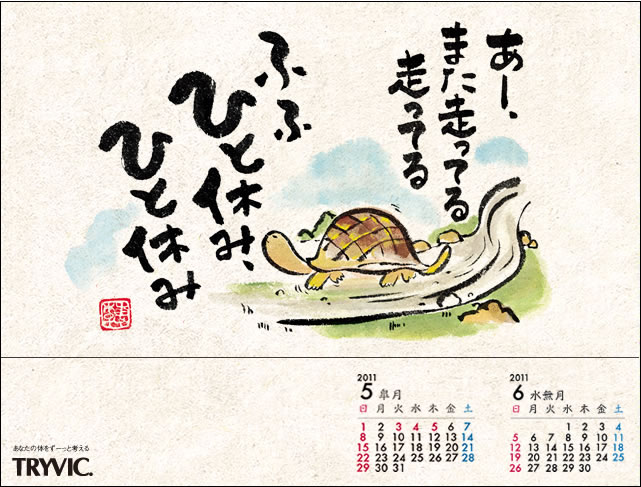 あー、
また走ってる
走ってる
ふふ
ひと休み、
ひと休み
2011
5 皐月
日 月 火 水 木 金 土
1 2 3 4 5 6 7
8 9 10 11 12 13 14
15 16 17 18 19 20 21
22 23 24 25 26 27 28
29 30 31
2011
6 水無月
日 月 火 水 木 金 土
1 2 3 4
5 6 7 8 9 10 11
12 13 14 15 16 17 18
19 20 21 22 23 24 25
26 27 28 29 30
あなたの体をずーっと考える
TRYVIC.